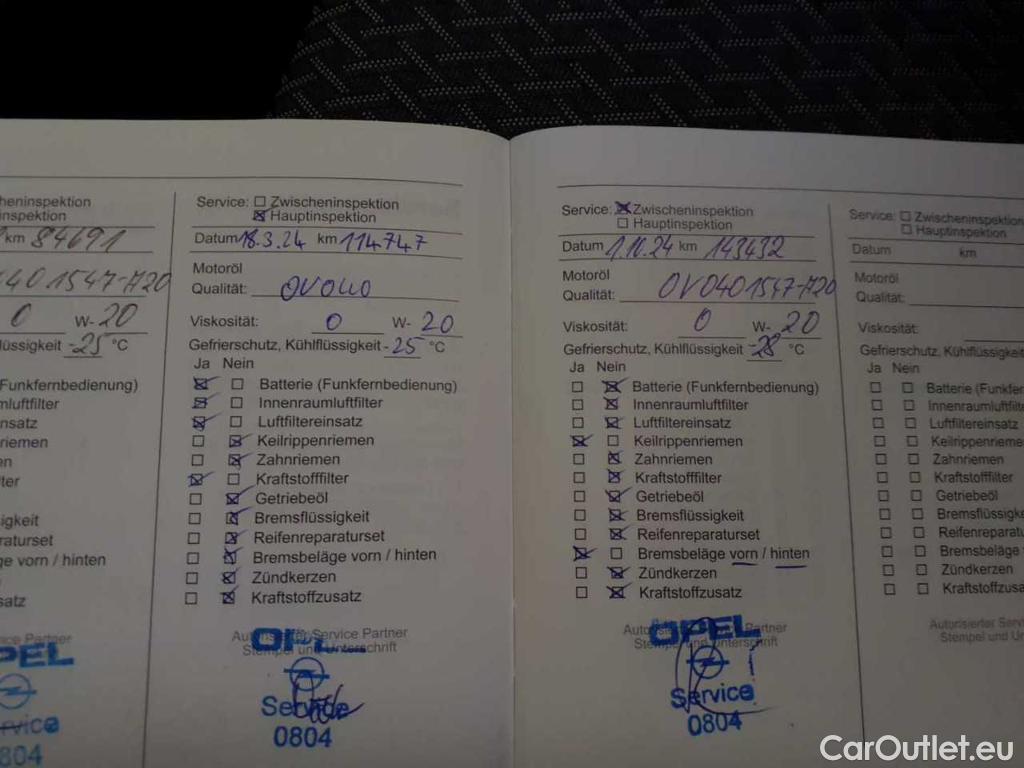 heninspektion
inspektion
km 84691
401547-A20
0 W-20
lüssigkeit -25 °C
(Funkfernbedienung)
mluftfilter
nsatz
riemen
en
lter
igkeit
araturset
ge vorn / hinten
satz
vice Partner
PEL
rvice
804
Service: Zwischeninspektion
Hauptinspektion
Datum 18.3.24 km 114747
Motoröl
Qualität: OVO40
Viskosität: 0 W-20
Gefrierschutz, Kühlflüssigkeit -25 °C
Ja Nein
Batterie (Funkfernbedienung)
Innenraumluftfilter
Luftfiltereinsatz
Keilrippenriemen
Zahnriemen
Kraftstofffilter
Getriebeöl
Bremsflüssigkeit
Reifenreparaturset
Bremsbeläge vorn / hinten
Zündkerzen
Kraftstoffzusatz
Autorisierter Service Partner
Stempel und Unterschrift
OPEL
Service
0804
Service: Zwischeninspektion
Hauptinspektion
Datum 1.10.24 km 143432
Motoröl
Qualität: OVO401547-A20
Viskosität: 0 W-20
Gefrierschutz, Kühlflüssigkeit -28 °C
Ja Nein
Batterie (Funkfernbedienung)
Innenraumluftfilter
Luftfiltereinsatz
Keilrippenriemen
Zahnriemen
Kraftstofffilter
Getriebeöl
Bremsflüssigkeit
Reifenreparaturset
Bremsbeläge vorn / hinten
Zündkerzen
Kraftstoffzusatz
Autorisierter Service Partner
Stempel und Unterschrift
OPEL
Service
0804
Service: Zwischeninspektion
Hauptinspektion
Datum km
Motoröl
Qualität:
Viskosität:
Gefrierschutz, Kühlflüssigkeit
Ja Nein
Batterie (Funkfer
Innenraumluftfilte
Luftfiltereinsatz
Keilrippenriemen
Zahnriemen
Kraftstofffilter
Getriebeöl
Bremsflüssigke
Reifenreparatu
Bremsbeläge vo
Zündkerzen
Kraftstoffzusatz
Autorisierter Servi
Stempel und Un
CarOutlet.eu